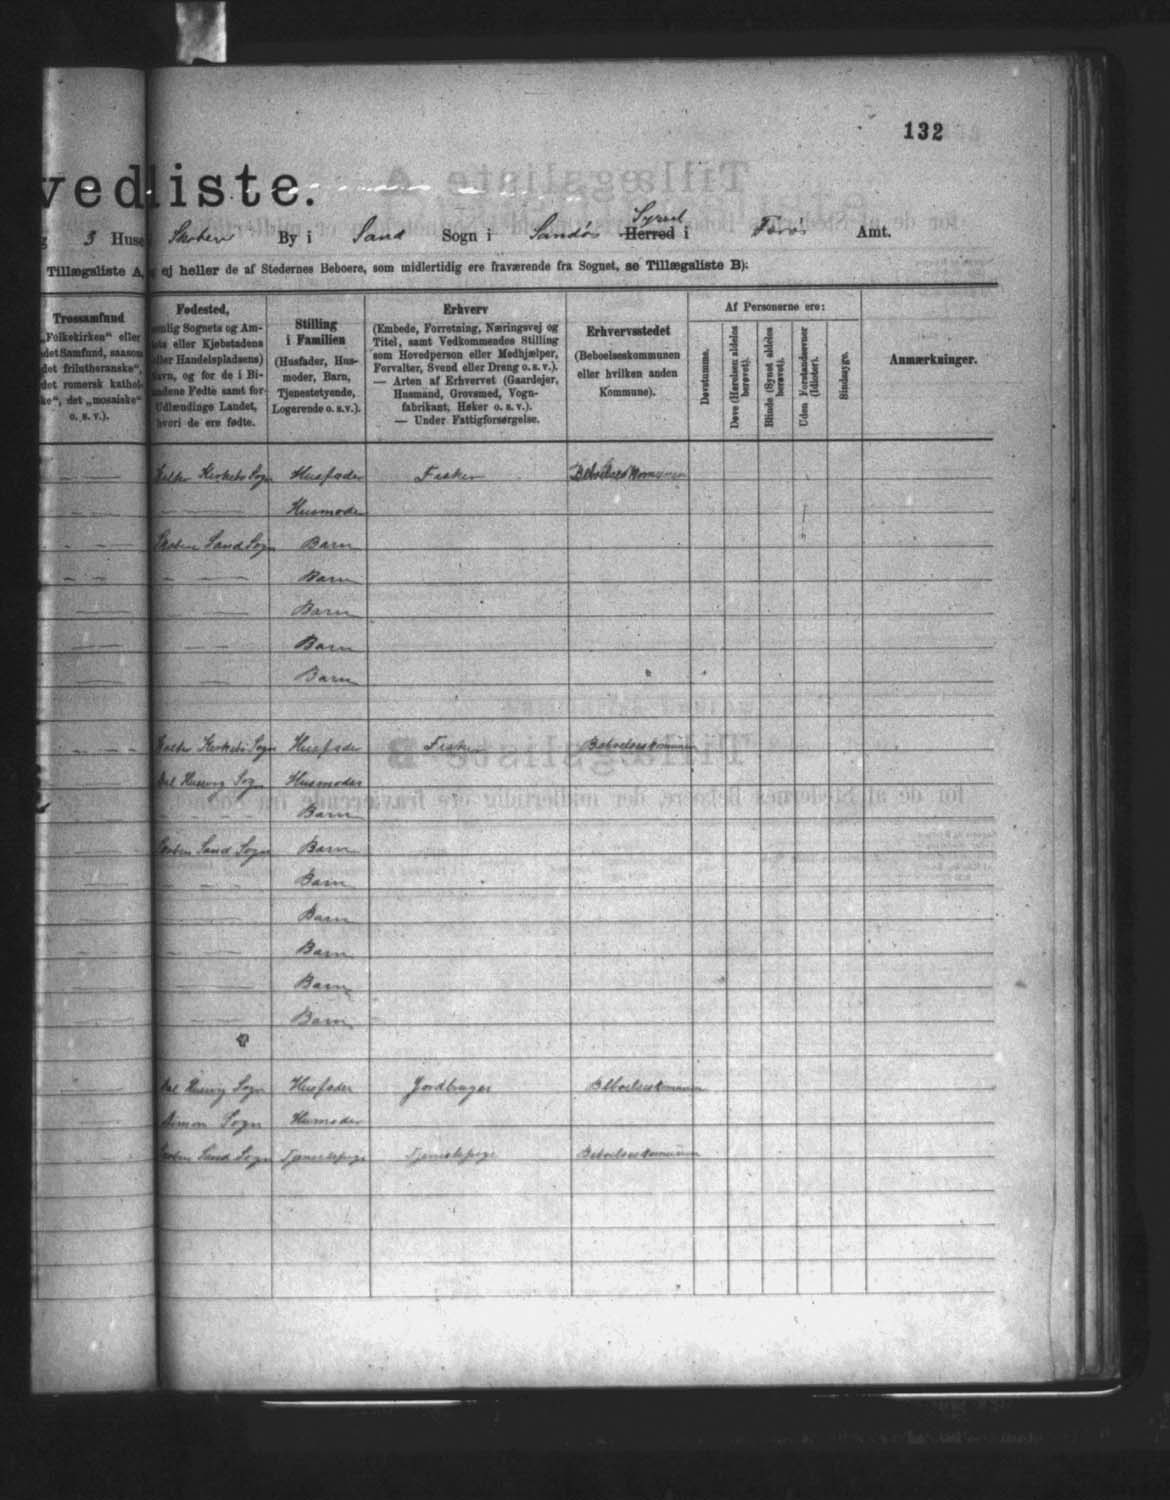 132
vedliste.
g 3 Huse Skoten By i Sand Sogn i Sandøs Syssel Herred i Færøs Amt.
Tillægsliste A, ej heller de af Stedernes Beboere, som midlertidig ere fraværende fra Sognet, se Tillægsliste B):
Trossamfund
„Folkekirken“ eller
det Samfund, saasom
det frilutheranske“,
det romersk kathol-
ke“, det „mosaiske“
o. s. v.).
Fødested,
nlig Sognets og Am-
ts eller Kjøbstadens
ller Handelspladsens)
avn, og for de i Bi-
ndene Fødte samt for
Udlændinge Landet,
hvori de ere fødte.
Stilling
i Familien
(Husfader, Hus-
moder, Barn,
Tjenestetyende,
Logerende o. s. v.).
Erhverv
(Embede, Forretning, Næringsvej og
Titel, samt Vedkommendes Stilling
som Hovedperson eller Medhjælper,
Forvalter, Svend eller Dreng o. s. v.).
— Arten af Erhvervet (Gaardejer,
Husmand, Grovsmed, Vogn-
fabrikant, Høker o. s. v.).
— Under Fattigforsørgelse.
Erhvervsstedet
(Beboelseskommunen
eller hvilken anden
Kommune).
Af Personerne ere:
Døvstumme.
Døve (Hørelsen aldeles
berøvet).
Blinde (Synet aldeles
berøvet).
Uden Forstandsevner
(Idioter).
Sindssyge.
Anmærkninger.
Sogn Husfader Fisker Beboelseskommunen
Husmoder
Skoten Sand Sogn Barn
Barn
Barn
Barn
Barn
Sogn Husfader Fisker Beboelseskommunen
Sogn Husmoder
Barn
Sand Sogn Barn
Barn
Barn
Barn
Barn
Barn
Sogn Husfader Jordbruger Beboelseskommunen
Sogn Husmoder
Sand Sogn Tjenestepige Tjenestepige Beboelseskommunen